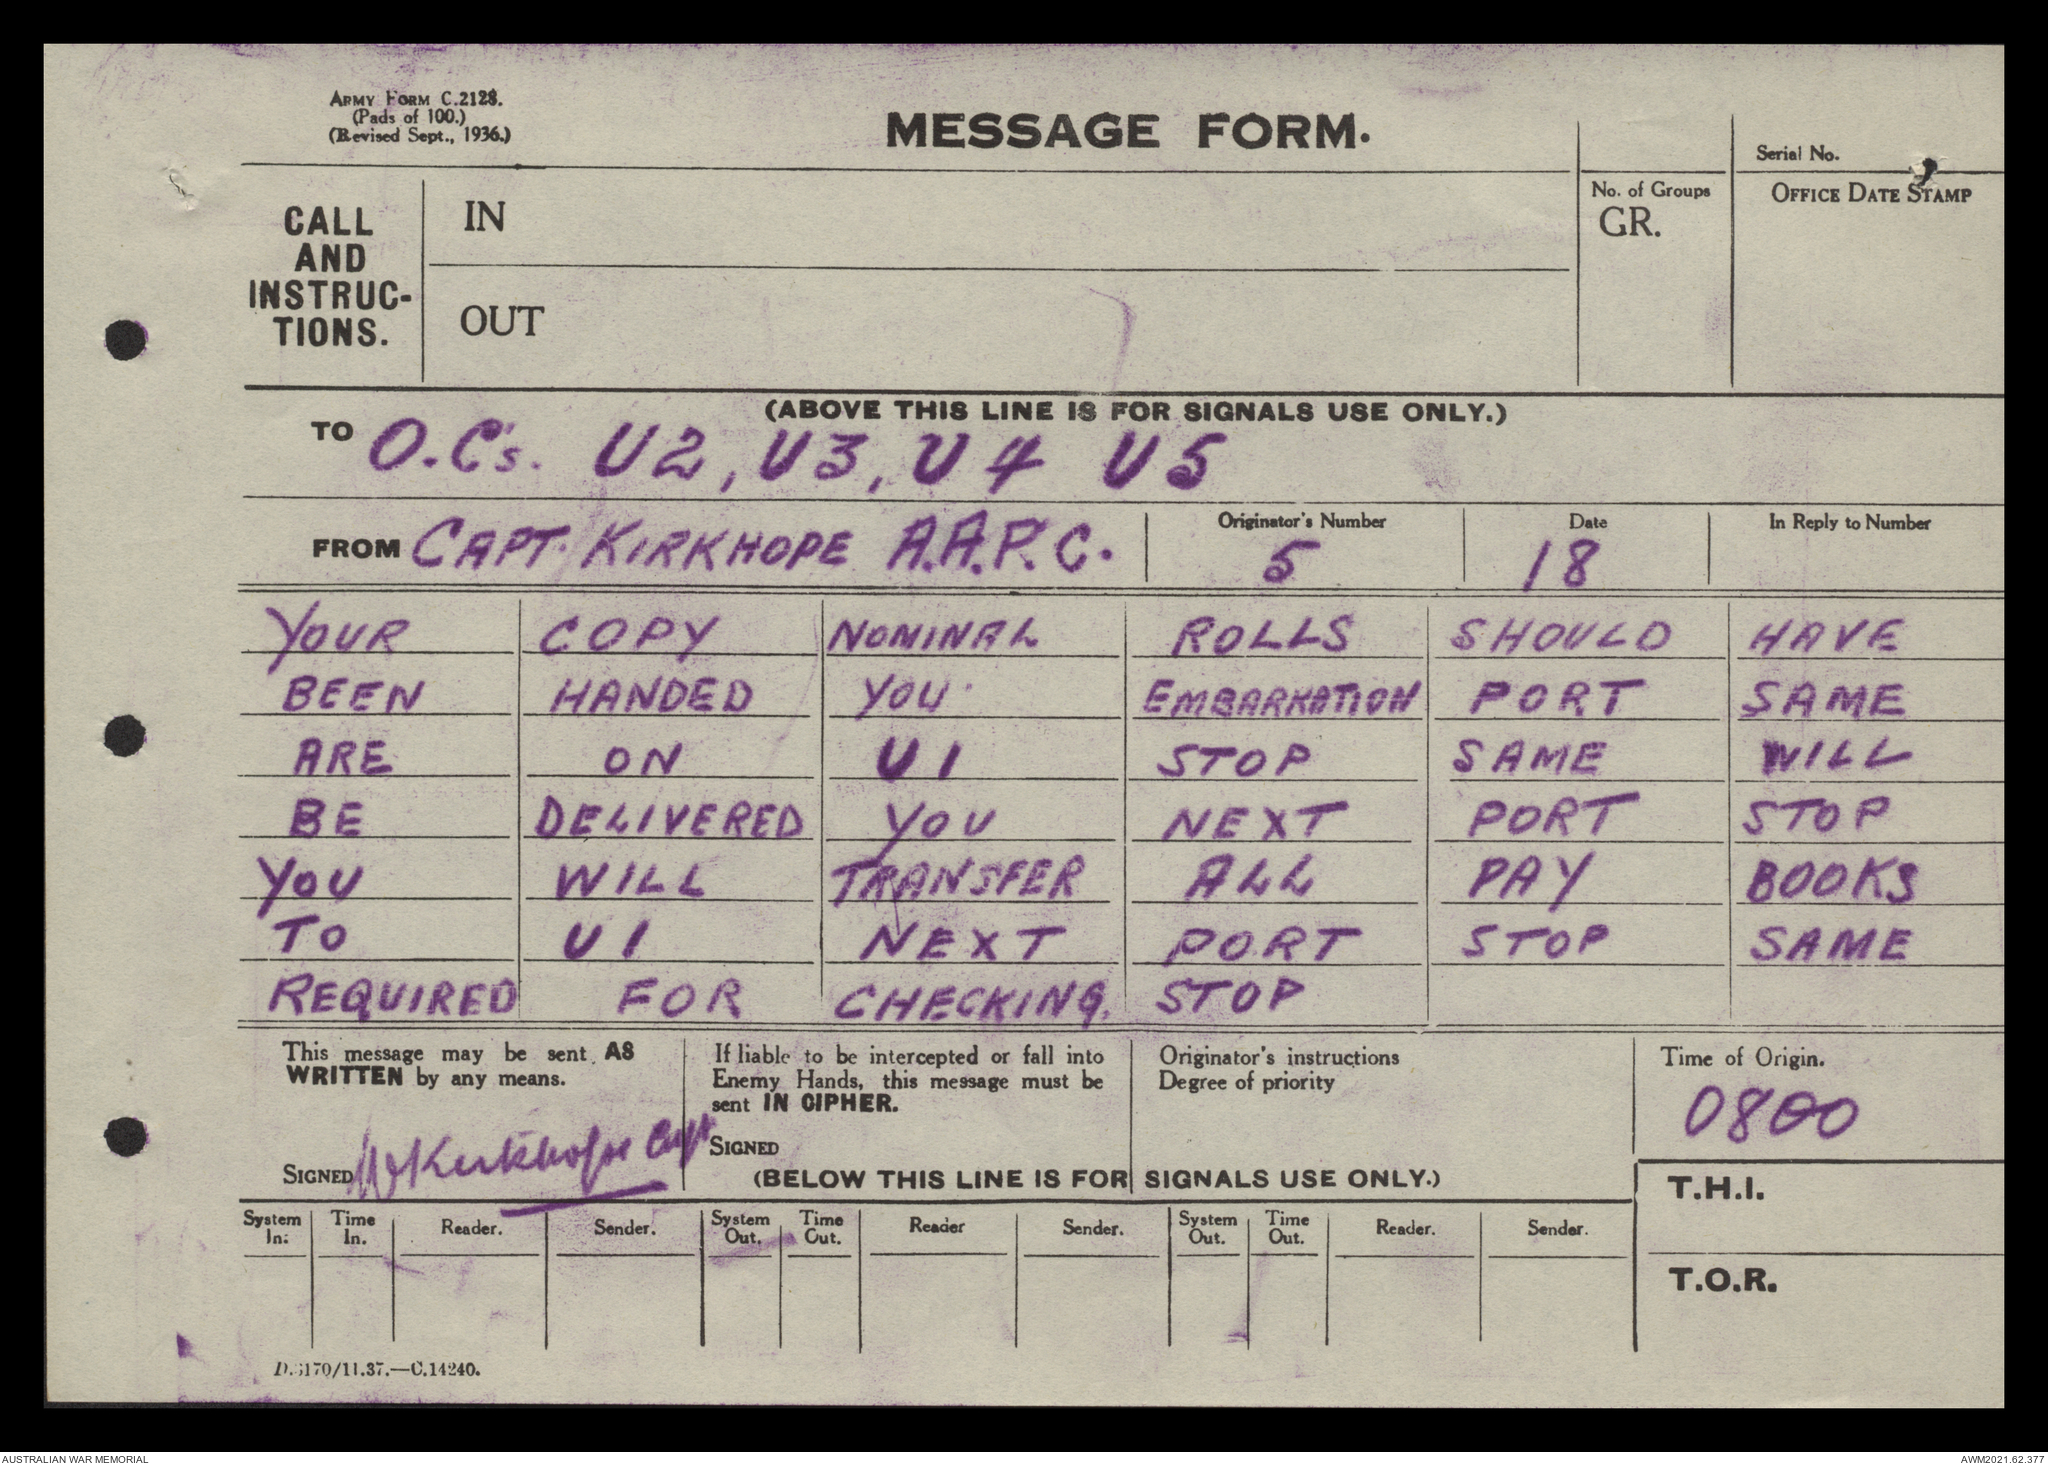 ARMY FORM C.2128.
(Pads of 100.)
(Revised Sept., 1936.)
MESSAGE FORM.
Serial No.
CALL AND INSTRUC- TIONS.
IN
OUT
No. of Groups
GR.
OFFICE DATE STAMP
(ABOVE THIS LINE IS FOR SIGNALS USE ONLY.)
TO O.C's. U2, U3, U4 U5
FROM CAPT. KIRKHOPE A.A.P.C.
Originator's Number
5
Date
18
In Reply to Number
YOUR COPY NOMINAL ROLLS SHOULD HAVE
BEEN HANDED YOU EMBARKATION PORT SAME
ARE ON U1 STOP SAME WILL
BE DELIVERED YOU NEXT PORT STOP
YOU WILL TRANSFER ALL PAY BOOKS
TO U1 NEXT PORT STOP SAME
REQUIRED FOR CHECKING. STOP
This message may be sent AS
WRITTEN by any means.
SIGNED Kirkhope Capt
If liable to be intercepted or fall into
Enemy Hands, this message must be
sent IN CIPHER.
SIGNED
Originator's instructions
Degree of priority
Time of Origin.
0800
(BELOW THIS LINE IS FOR SIGNALS USE ONLY.)
T.H.I.
System In: Time In. Reader. Sender. System Out. Time Out. Reader Sender. System Out. Time Out. Reader. Sender.
T.O.R.
D.5170/11.37.—C.14240.
AUSTRALIAN WAR MEMORIAL
AWM2021.62.377